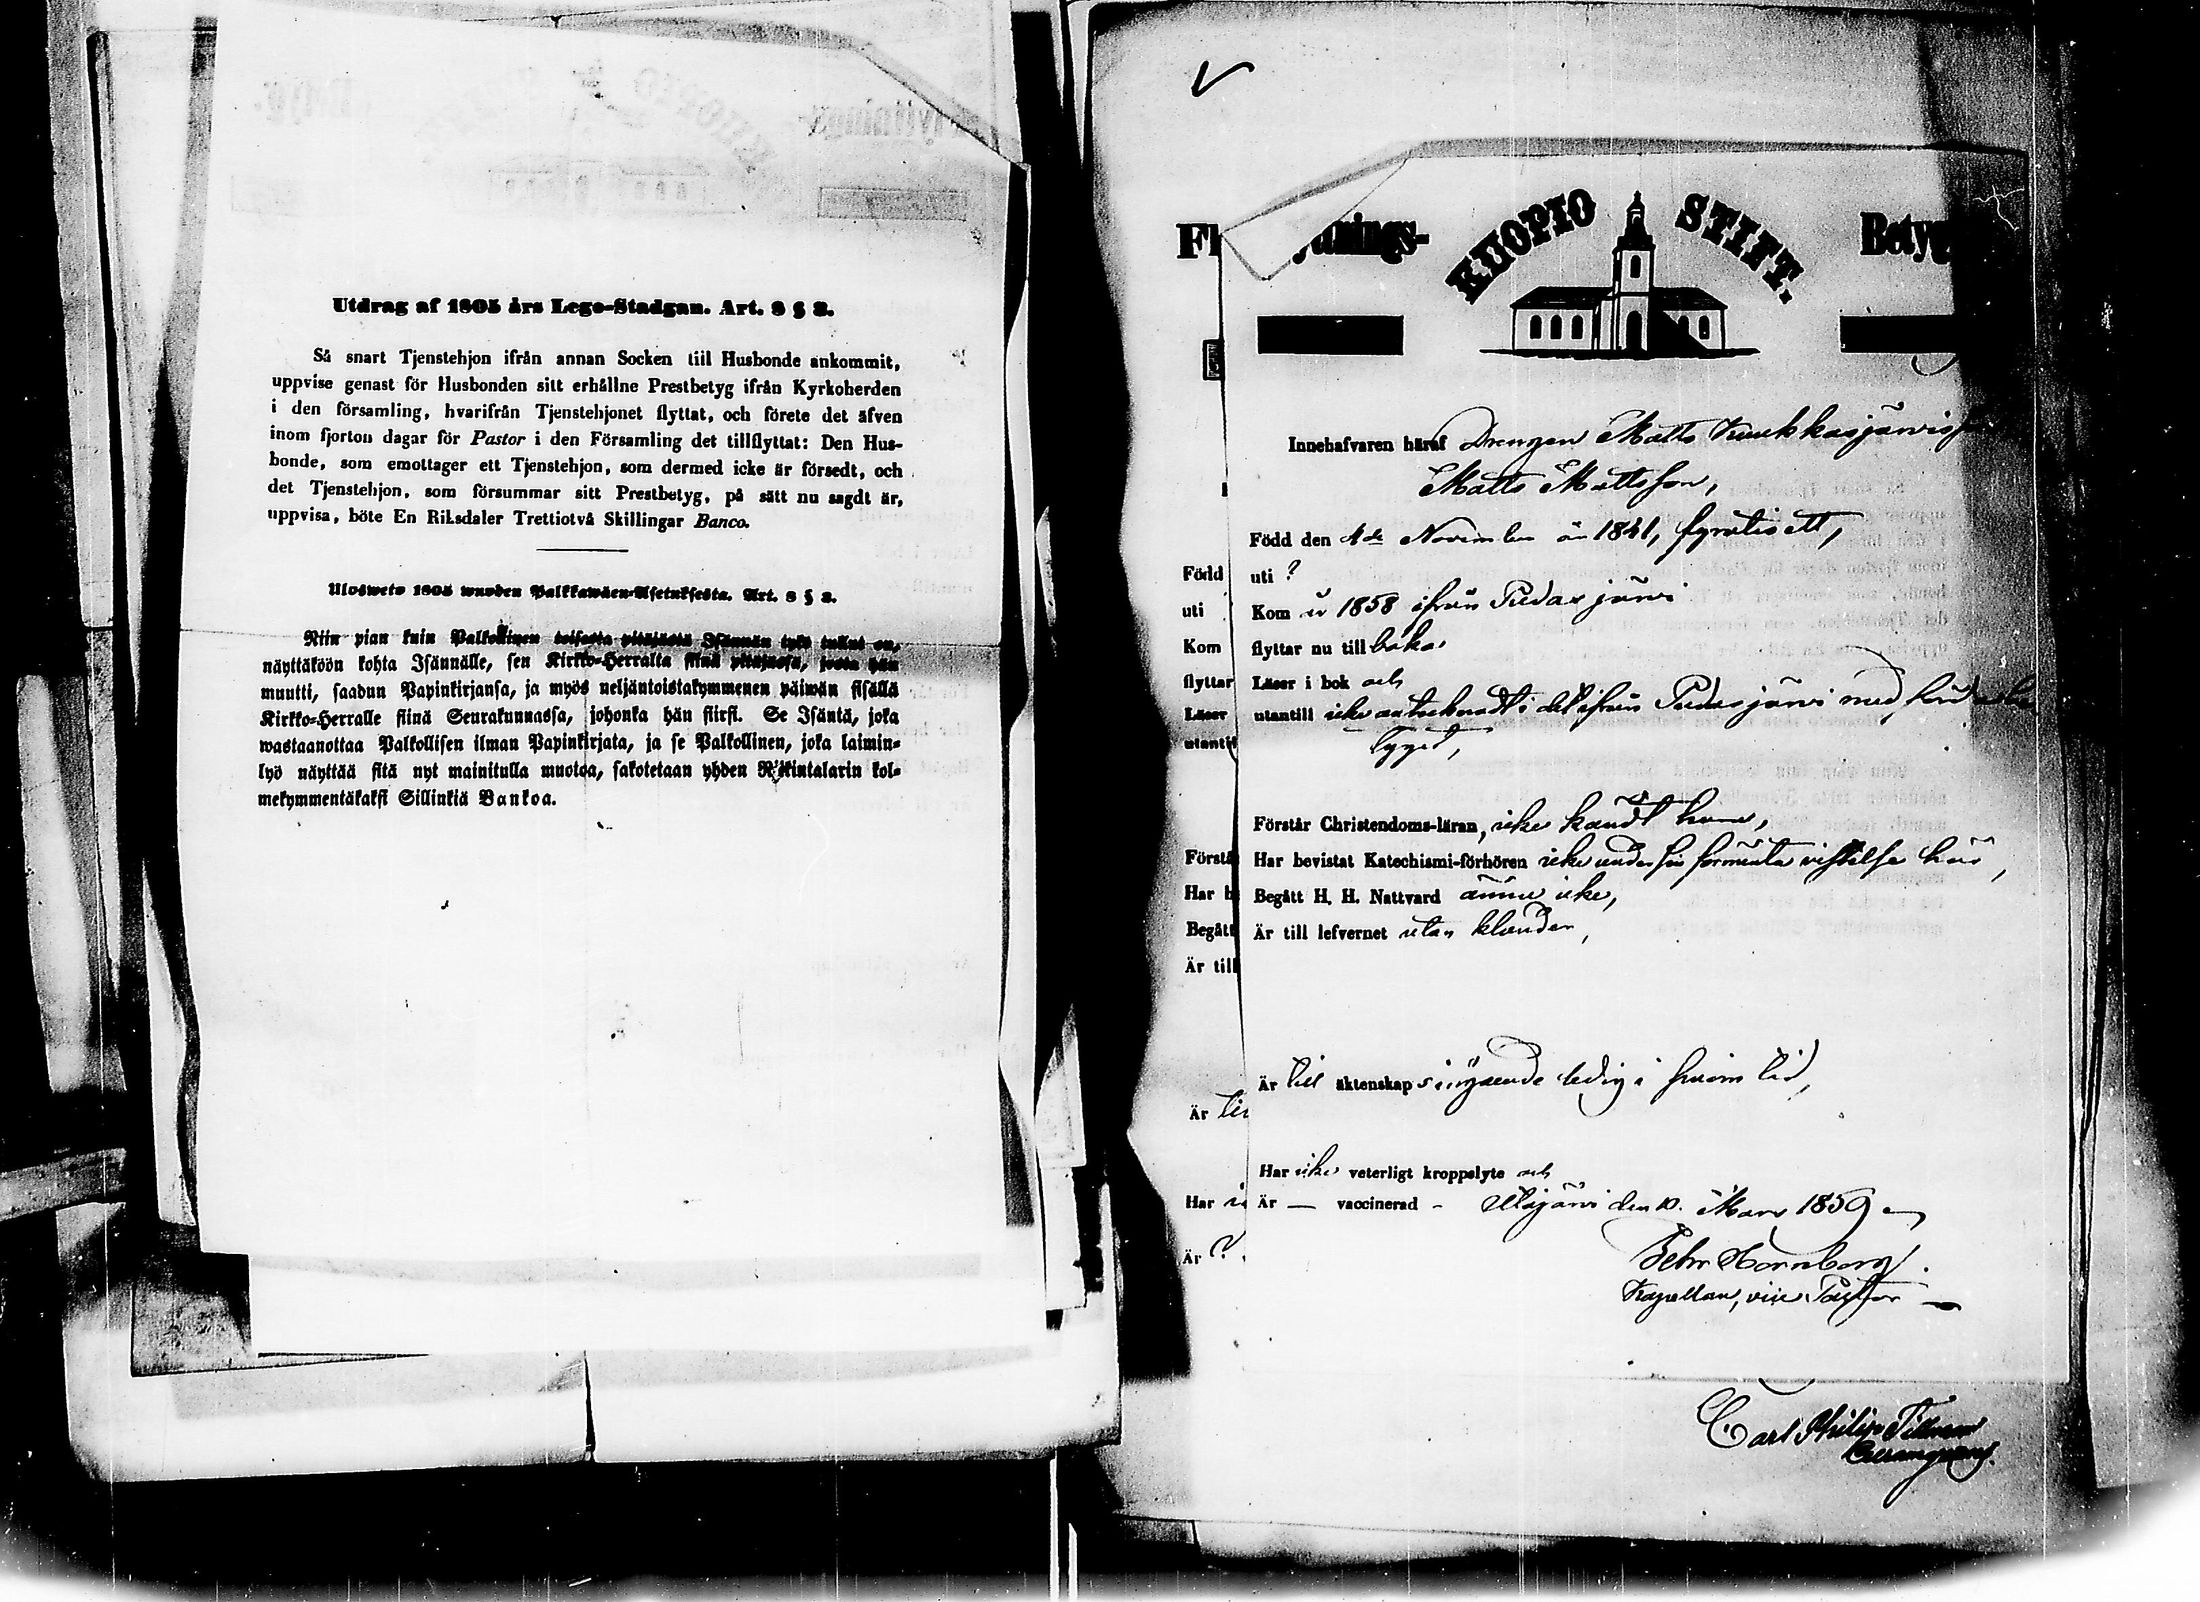 Utdrag af 1805 års Lego-Stadgan. Art. 8 § 2.
Så snart Tjenstehjon ifrån annan Socken till Husbonde ankommit,
uppvise genast för Husbonden sitt erhållne Prestbetyg ifrån Kyrkoherden
i den församling, hvarifrån Tjenstehjonet flyttat, och förete det äfven
inom fjorton dagar för Pastor i den Församling det tillflyttat: Den Hus-
bonde, som emottager ett Tjenstehjon, som dermed icke är försedt, och
det Tjenstehjon, som försummar sitt Prestbetyg, på sätt nu sagdt är,
uppvisa, böte En Riksdaler Trettiotvå Skillingar Banco.
Ulosweto 1805 wuoden Palkkawäen-Asetuksesta. Art. 8 § 2.
Niin pian kuin Palkollinen toisesta pitäjästä Isännän tykö tullut on,
näyttäköön kohta Isännälle, sen Kirkko-Herralta siinä pitäjässä, josta hän
muutti, saadun Papinkirjansa, ja myös neljäntoistakymmenen päiwän sisällä
Kirkko-Herralle siinä Seurakunnassa, johonka hän siirsi. Se Isäntä, joka
wastaanottaa Palkollisen ilman Papinkirjata, ja se Palkollinen, joka laimin-
lyö näyttää sitä nyt mainitulla muotoa, sakotetaan yhden Riikintalarin kol-
mekymmentäkaksi Sillinkiä Bankoa.
KUOPIO STIFT.
Innehafvaren häraf Drengen Matts Kuukkasjärvi
Matts Mattsson,
Född den 4de November år 1841, fyratioett,
uti ?
Kom år 1858 ifrån Pudasjärvi
flyttar nu till baka
Läser i bok och
utantill icke antecknadt i det ifrån Pudasjärvi med
Förstår Christendoms-läran, icke kändt
Har bevistat Katechismi-förhören icke under sin vistelse här,
Begått H. H. Nattvard ännu icke,
Är till lefvernet utan klander,
Är till äktenskaps ingående ledig i sinom tid,
Har icke veterligt kroppslyte och
Är — vaccinerad - Utajärvi den 10. Mars 1859
Hornborg.
Kapellan, vice Pastor
Född
uti
Kom
flyttar
Läser
utantil
Förstå
Har b
Begått
Är till
Är
Har
Är ?
Carl Philip